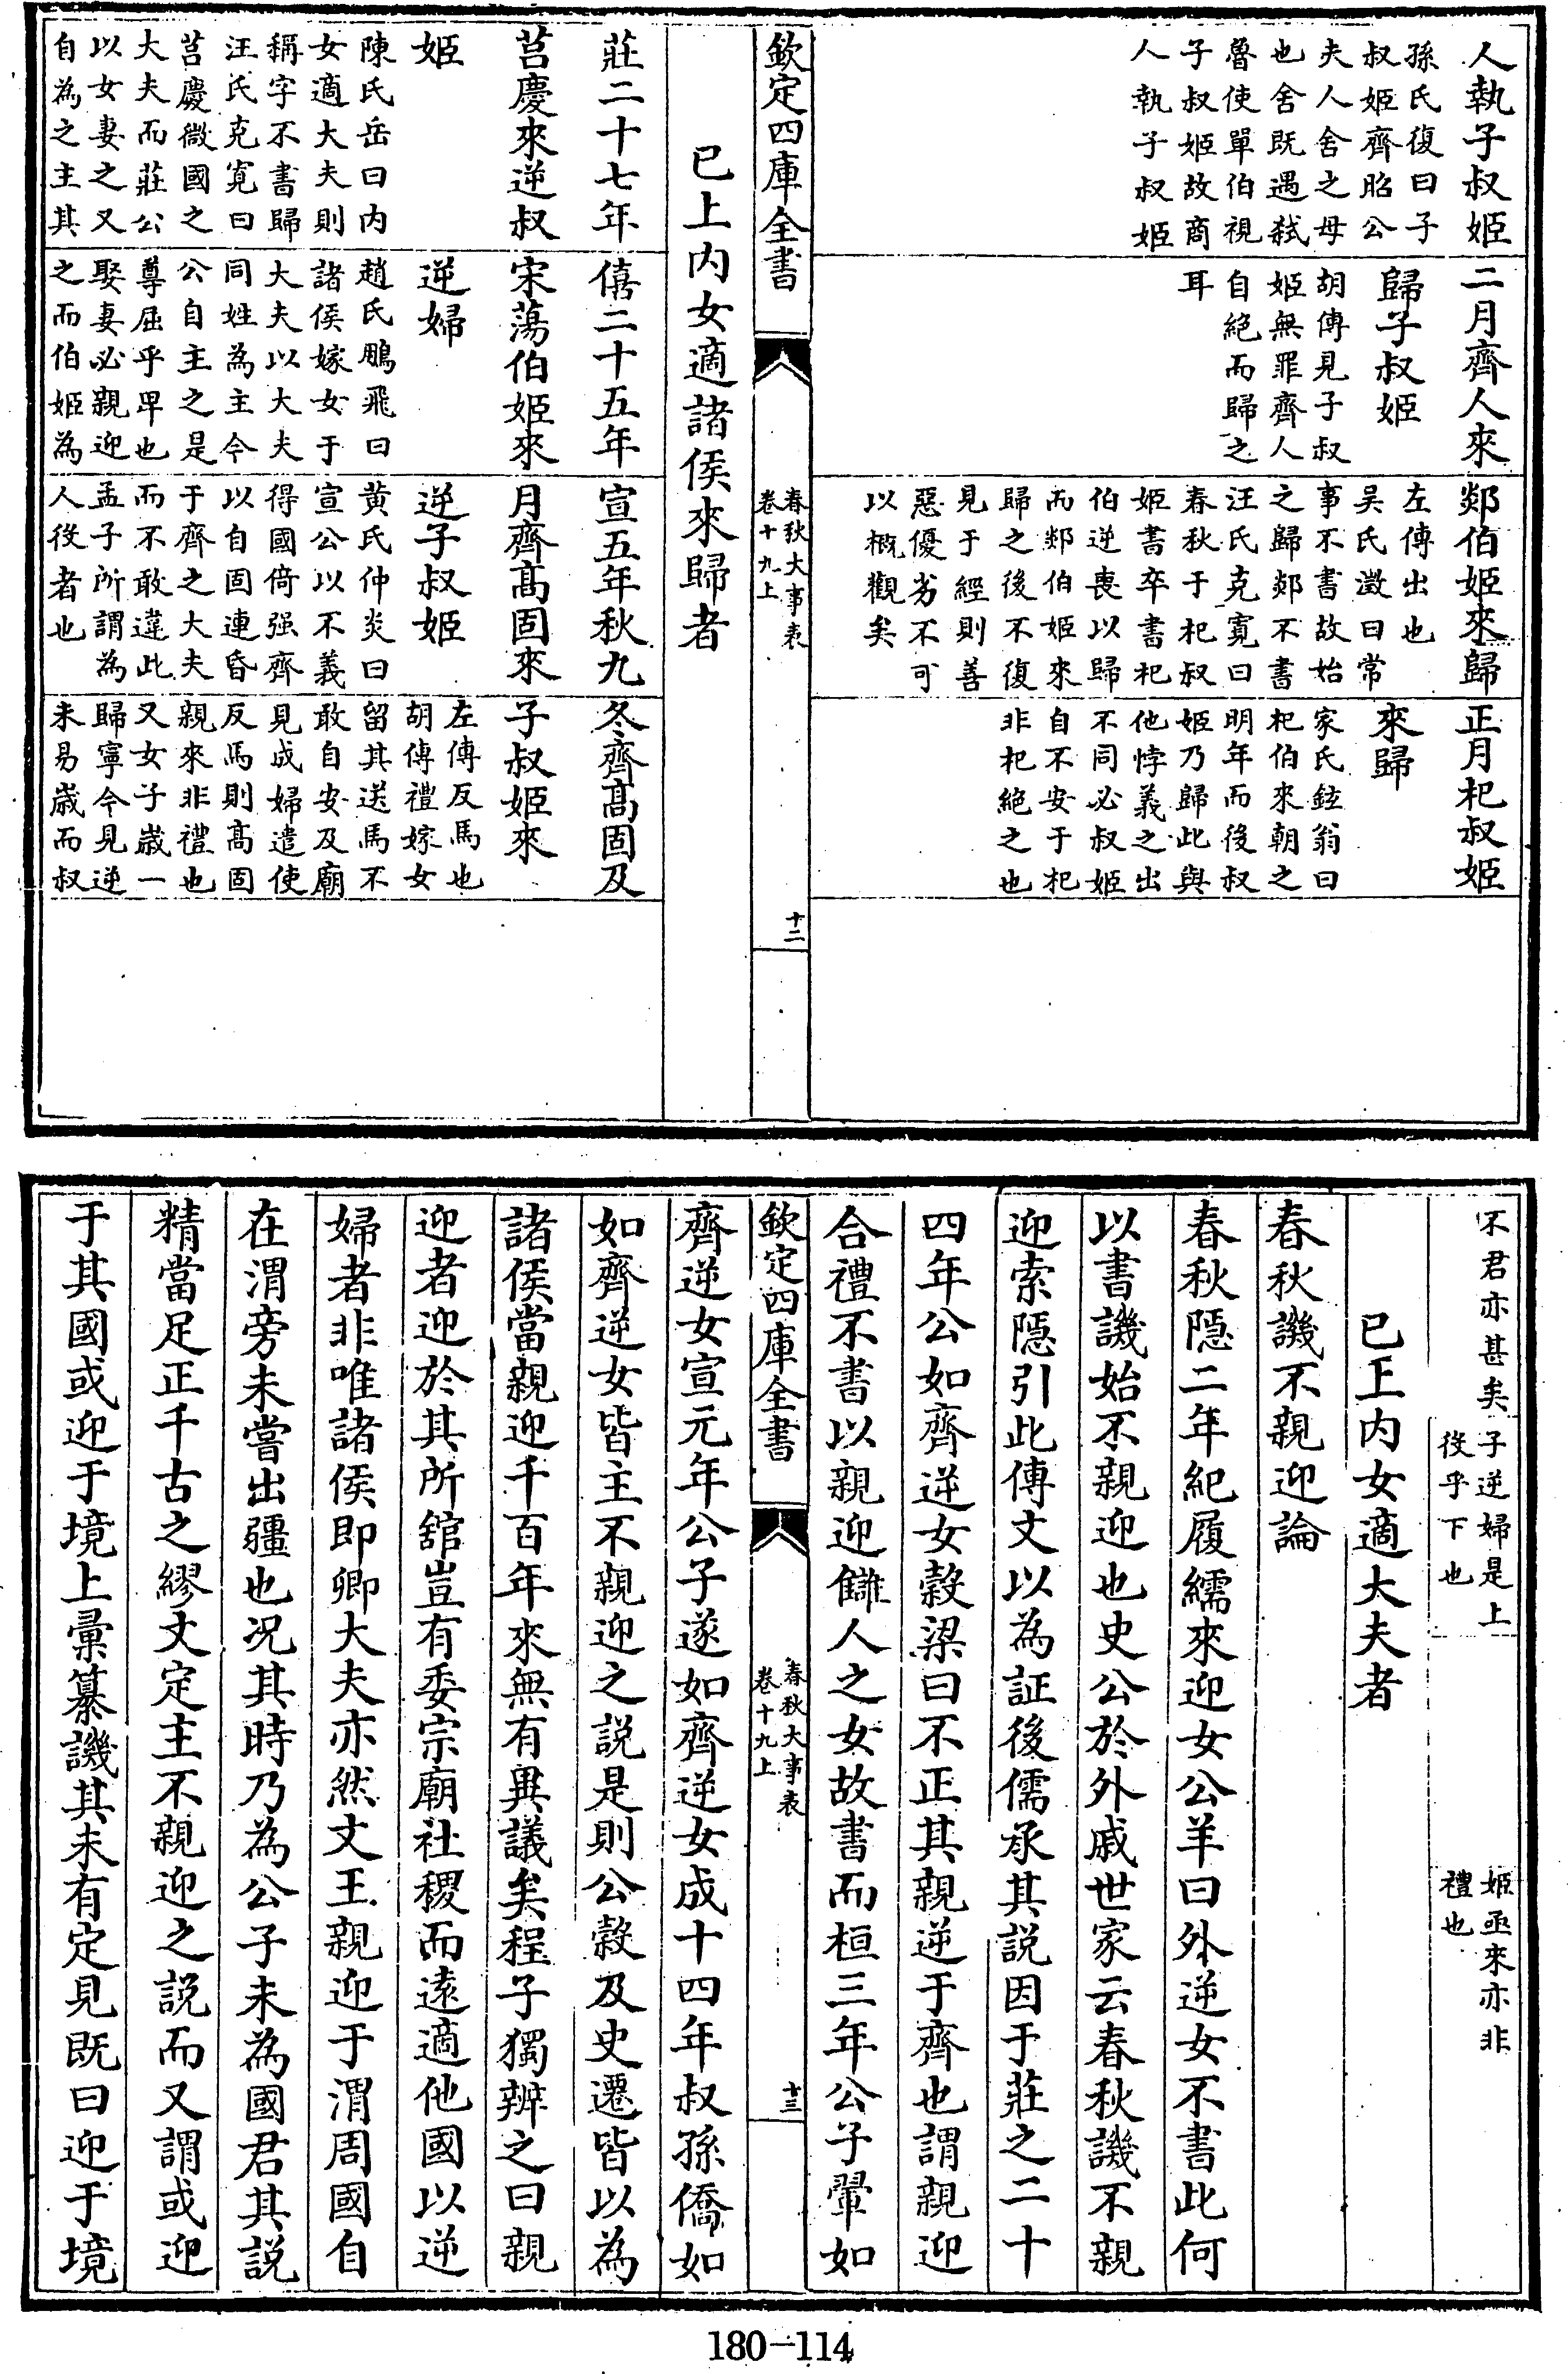 人執子叔姬
孫氏復曰子
叔姬齊昭公
夫人舍之母
也舍既遇弑
魯使單伯視
子叔姬故商
人執子叔姬
二月齊人來
歸子叔姬
胡傳見子叔
姬無罪齊人
自絶而歸之
耳
郯伯姬來歸
左傳出也
吴氏澂曰常
事不書故始
之歸郯不書
汪氏克寛曰
春秋于杞叔
姬書卒書杞
伯逆喪以歸
而郯伯姬來
歸之後不復
見于經則善
惡優劣不可
以槪觀矣
正月杞叔姬
來歸
家氏鉉翁曰
杞伯來朝之
明年而後叔
姬乃歸此與
他悖義之出
不同必叔姬
自不安于杞
非杞絶之也
欽定四庫全書
春秋大事表
卷十九上
十二
已上内女適諸侯來歸者
莊二十七年
莒慶來逆叔
姬
陳氏岳曰内
女適大夫則
稱字不書歸
汪氏克寛曰
莒慶微國之
大夫而莊公
以女妻之又
自為之主其
僖二十五年
宋蕩伯姬來
逆婦
趙氏鵬飛曰
諸侯嫁女于
大夫以大夫
同姓為主今
公自主之是
尊屈乎卑也
娶妻必親迎
之而伯姬為
宣五年秋九
月齊髙固來
逆子叔姬
黄氏仲炎曰
宣公以不義
得國倚强齊
以自固連昏
于齊之大夫
而不敢違此
孟子所謂為
人役者也
冬齊髙固及
子叔姬來
左傳反馬也
胡傳禮嫁女
留其送馬不
敢自安及廟
見成婦遣使
反馬則髙固
親來非禮也
又女子歳一
歸寧今見逆
未易歳而叔
不君亦甚矣
子逆婦是上
役乎下也
姬亟來亦非
禮也
已上内女適大夫者
春秋譏不親迎論
春秋隱二年紀履繻來迎女公羊曰外逆女不書此何
以書譏始不親迎也史公於外戚世家云春秋譏不親
迎索隱引此傳文以為証後儒承其説因于莊之二十
四年公如齊逆女榖梁曰不正其親逆于齊也謂親迎
合禮不書以親迎讎人之女故書而桓三年公子翬如
欽定四庫全書
春秋大事表
卷十九上
十三
齊逆女宣元年公子遂如齊逆女成十四年叔孫僑如
如齊逆女皆主不親迎之説是則公榖及史遷皆以為
諸侯當親迎千百年來無有異議矣程子獨辨之曰親
迎者迎於其所舘豈有委宗廟社稷而遠適他國以逆
婦者非唯諸侯即卿大夫亦然文王親迎于渭周國自
在渭旁未嘗出疆也况其時乃為公子未為國君其説
精當足正千古之繆文定主不親迎之説而又謂或迎
于其國或迎于境上彚纂譏其未有定見既曰迎于境
180-114